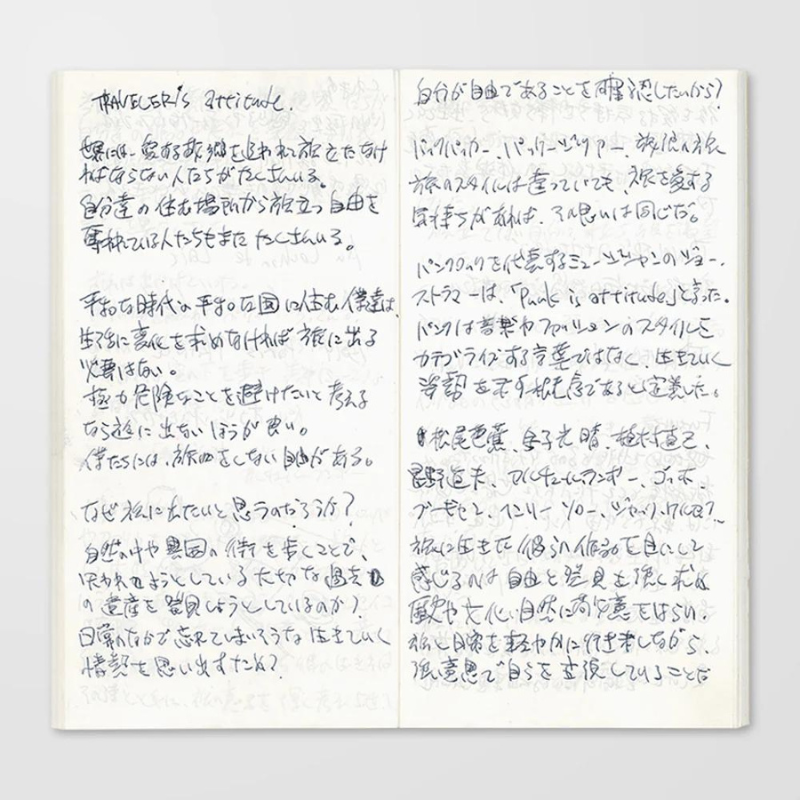 TRAVELER'S attitude.
世界には、愛する故郷を追われて旅立たなけ
ればならない人たちがたくさんいる。
自分達の住む場所から旅立つ自由を
奪われている人たちもまたたくさんいる。
平和な時代の、平和な国に住む僕達は、
生活に変化を求めなければ旅に出る
必要はない。
極力危険なことを避けたいと考える
なら旅に出ないほうが良い。
僕たちには、旅をしない自由がある。
なぜ旅に出たいと思うのだろうか?
自然の中や異国の街を歩くことで、
失われようとしている大切な過去
の遺産を発見しようとしているのか?
日常のなかで忘れてしまいそうな生きていく
情熱を思い出すため?
自分が自由であることを確認したいから?
バックパッカー、パッケージツアー、旅
旅のスタイルは違っていても、旅を愛する
気持ちがあれば、その思いは同じだ。
パンクロックを代表するミュージシャンのジョー・
ストラマーは、「Punk is attitude」と言った。
パンクは音楽やファッションのスタイルを
カテゴライズする言葉ではなく、生きていく
姿勢を示す概念であると定義した。
松尾芭蕉、金子光晴、植村直己、
星野道夫、アルチュール・ランボー、ゴッホ、
ゴーギャン、ヘンリー・ソロー、ジャック・ケルアック
旅に生きた彼らの作品を目にして
感じるのは自由と発見を強く求め
歴史や文化、自然に敬意をはらい、
旅と日常を軽やかに行き来しながら、
強い意思で自らを主張していることだ